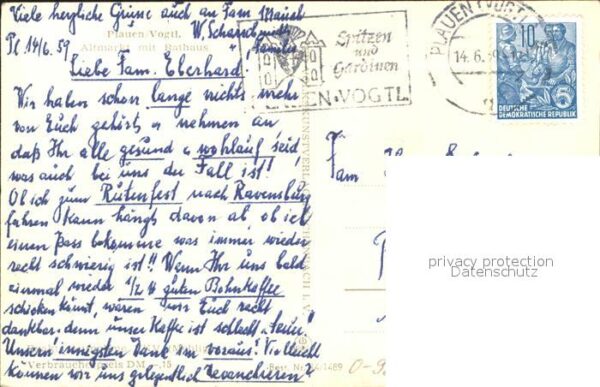 Viele herzliche Grüsse auch an Fam Strauch
W. Scharschmidt
u. Familie
Pl 14/6. 59
Plauen Vogtl.
Altmarkt mit Rathaus
Liebe Fam. Eberhard!
Wir haben schon lange nichts mehr
von Euch gehört, u nehmen an
daß Ihr alle gesund u wohlauf seid
was auch bei uns der Fall ist!
Ob ich zum Rutenfest nach Ravensburg
fahren kann hängt davon ab ob ich
einen Pass bekomme was immer wieder
recht schwierig ist!! Wenn Ihr uns bald
einmal wieder 1/2 ℔ guten Bohnkaffee
schicken könnt, wären wir Euch recht
dankbar. denn unser Kaffee ist schlecht u. teuer.
Unsern innigsten Dank im voraus! Vielleicht
können wir uns gelegentlich revanchieren?
Verbraucherpreis DM -.15
Best. Nr.
1489
Spitzen
und
Gardinen
PLAUEN·VOGTL
PLAUEN (VOGTL)
14.6.59
10
DEUTSCHE
DEMOKRATISCHE REPUBLIK
5
Fam
privacy protection
Datenschutz